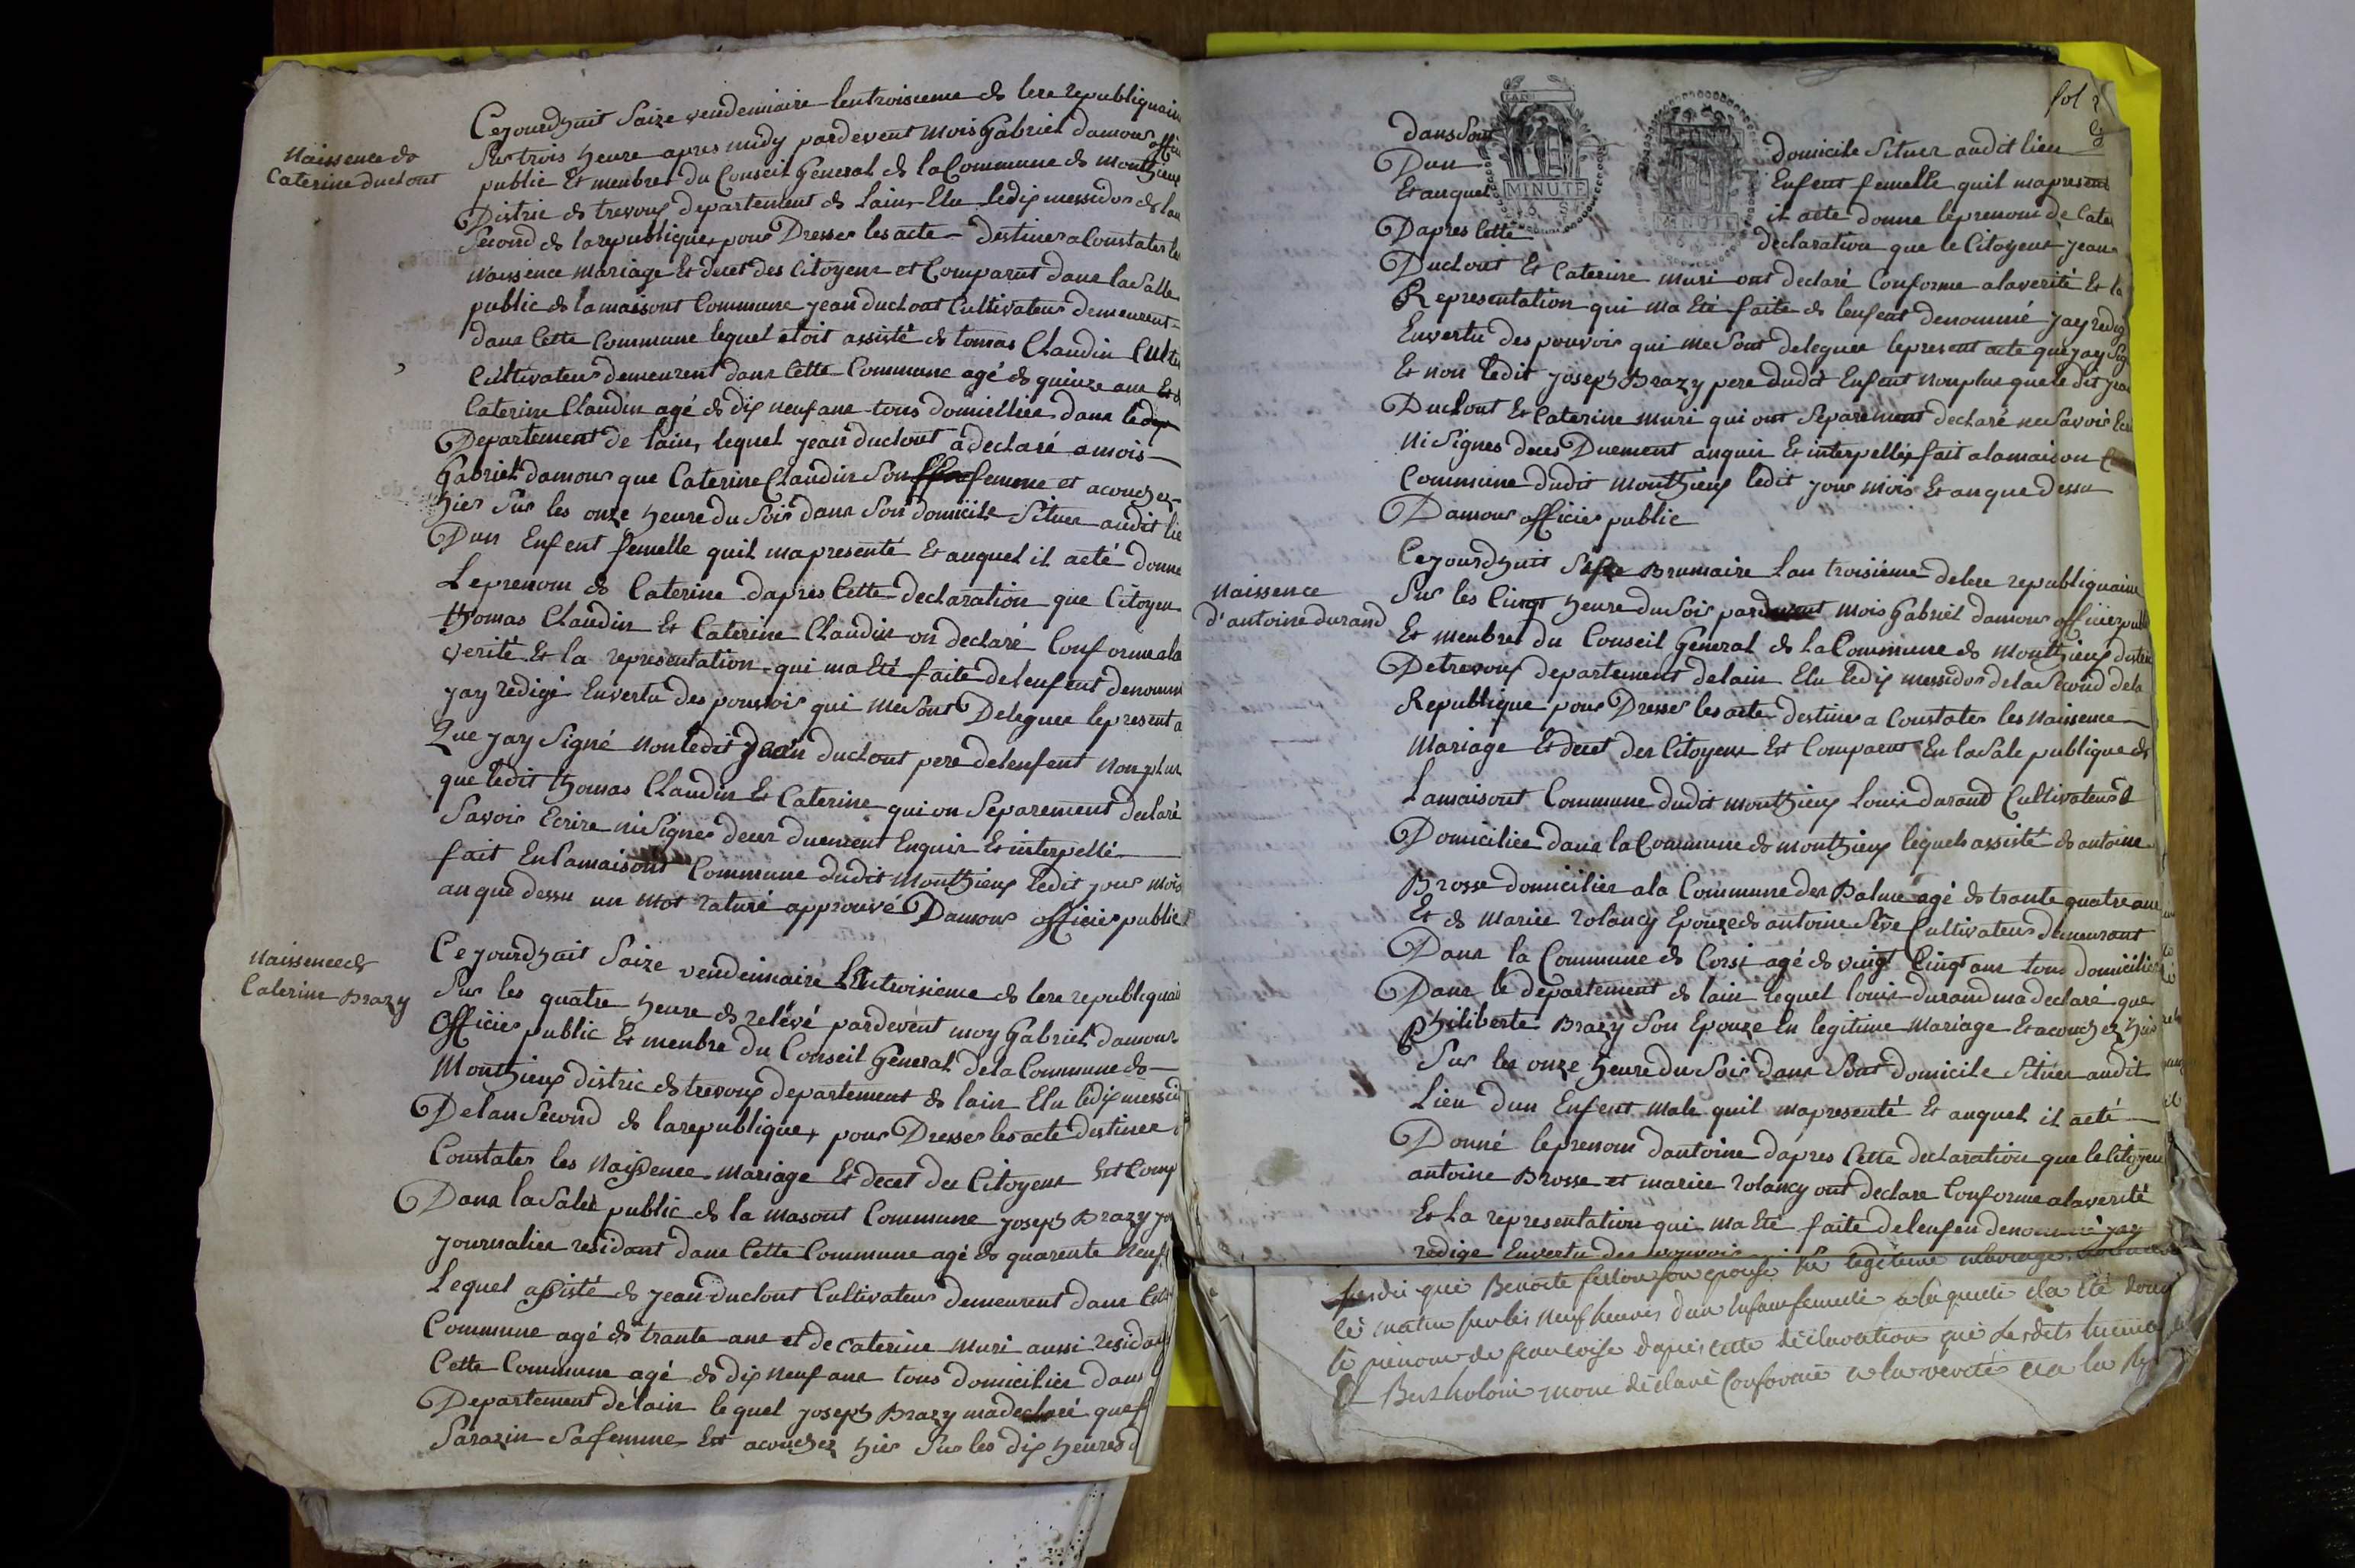 Naissence de
Caterine duclout
Cejourdhuit Saize vendemiaire lentroisieme de lere republiquain
Sur trois heure apres midy pardevent mois Gabriel damour offici
public Et menbret du Conseil General de la Commune de Monthieux
Distric de trevoux departement de lain, Elu ledix messidor de lan
Second de la republique, pour Dresser les acte destiner a Constater les
Naissence mariage Et decet des Citoyent et Comparut dans la Salle
public de la maisont Commune jean duclout Cultivateur demeurent
dans Cette Commune lequel etoit assisté de tomas Claudin Culti
Cultivateur demeurent dans Cette Commune agé de quinze ans Et d
Caterine Claudin agé de dix neuf ans tous domiciliée dans le dep
Departement de lain, lequel jean duclout à declaré a mois
Gabriel damour que Caterine Claudin Son femme et acoucher
hier Sur les onze heure du Soir dans Son domicile Situer audit lie
Dun Enfent femelle quil mapresenté Et auquel il aeté donne
Leprenom de Caterine dapres Cette declaration que Citoyen
thomas Claudin Et Caterine Claudin on declaré Conforme ala
verité Et la representation qui ma Eté faite delenfent denommé
jay redigé Envertu des pouvoir qui me Sont Deleguee lepresent a
Que jay Signé non ledit jean duclout pere delenfent non plus
que ledit thomas Claudin Et Caterine qui on Separement declaré
Savoir Ecrire ni Signer deux duement Enquir Et interpellé
fait En lamaisont Commune dudit Monthieux ledit jour mois
an que dessu un mot raturé approuvé Damour officier public
Naissence de
Caterine Brazy
Cejourdhuit Saize vendemiaire Lentroisieme de lere republiquai
Sur les quatre heure de relévé pardevent moy Gabriel damour
Officier public Et menbre du Conseil General de la Commune de
Monthieux distric de trevoux departement de lain Elu ledix messid
De lan Second de la republique, pour Dresser les acte destinee
Constater les Naissence mariage Et decet des Citoyent Est Comp
Dans la Salee public de la masont Commune joseph Brazy jo
journaliee residant dans Cette Commune agé de quarente neuf
Lequel assisté de jean duclout Cultivateur demeurent dans Cett
Commune agé de trante ans et de Caterine muri aussi residan
Cette Commune agé de dix neuf ans tous domicilier dans
Departement de lain lequel joseph Brazy ma declaré que
Sarazin Sa femme Est acoucher hier Sur les dix heures d
fol 2
dans Sont domicile Situer audit lieu
Dun Enfent femelle quil mapresent
Et auquel il aete donne leprenom de Cate
Dapres Cette declaration que le Citoyent jean
Duclout Et Caterine muri ont declaré Conforme alaverité Et la
Representation qui ma Eté faite de lenfent denommé jay redig
Envertu des pouvoir qui me Sont deleguee lepresent acte que jay Sig
Et non ledit joseph Brazy pere dudit Enfent non plus que le dit jean
Duclout Et Caterine muri qui ont Separement declaré ne Savoir Ecri
Ni Signer deux Duement anquir Et interpellé, fait a la maison
Commune dudit Monthieux ledit jour mois Et an que dessu
Damour officier public
Naissence
d'antoine durand
Cejourdhuit Brumaire lan troisieme delere republiquaine
Sur les Cingt heure du Soir pardevent mois Gabriel damour officier publ
Et menbret du Conseil General de La Commune de Monthieux distric
De trevoux departement delain Elu ledix messidor de la Second dela
Republique pour Dresser les acte destiner a Constater les Naissence
Mariage Et decet des Citoyent Est Comparut En la Sale publique de
Lamaisont Commune dudit Monthieux Louis durand Cultivateur
Domiciliee dans la Commune de Monthieux lequel assisté de antoine
Brosse domicilier ala Commune des Balme agé de trante quatre ans
Et de Mariee rolancy Epouze de antoine Séve Cultivateur demeurant
Dans la Commune de Corsi agé de vingt Cingt ans tous domicilier
Dans le departement de lain lequel louis durand ma declaré que
Philiberte Brazy Son Epouze En legitime Mariage Et acoucher hier
Sur les onze heure du Soir dans Sont domicile Situer audit
Lieu dun Enfent male quil mapresenté Et auquel il aeté
Donné leprenom dantoine dapres Cette declaration que le Citoyen
antoine Brosse et mariee rolancy ont declare Conforme alaverité
Et La representation qui ma Eté faite delenfen denommé jay
redige Envertu des pouvoir
que Benoite fillon son epouse en legitime mariage
le matin sur les neuf heures d'un enfan femelle a laquelle il a Eté donn
le prenom de francoise dapres cette déclaration que les dits
Bertholoni mont déclaré Conforme a la verité et a la